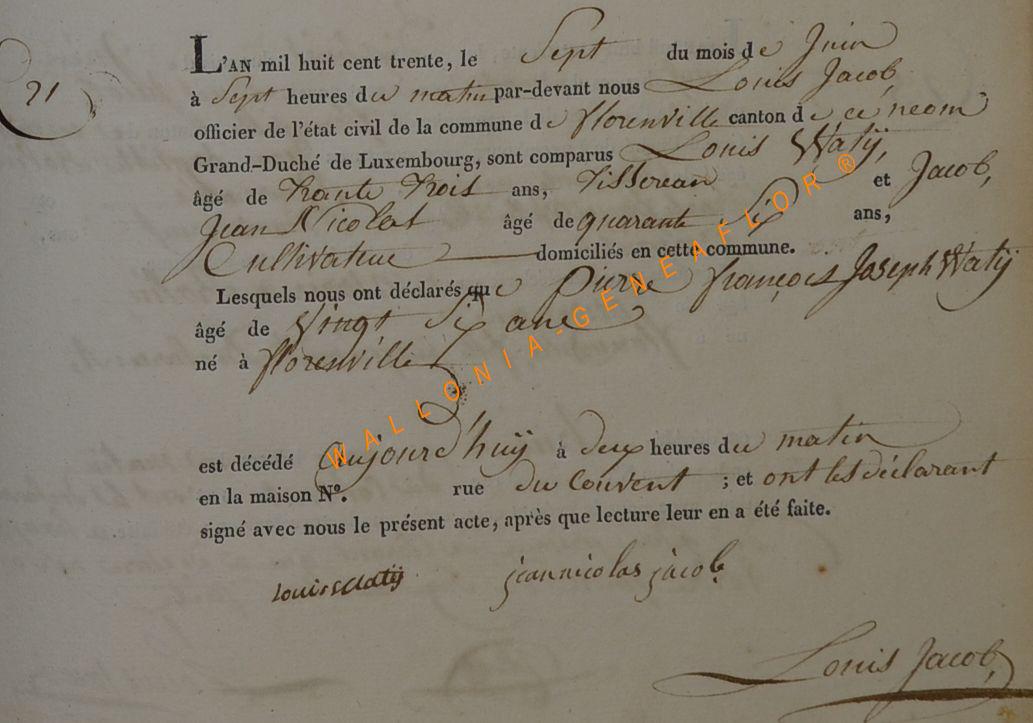 21
L'AN mil huit cent trente, le Sept du mois de Juin
à Sept heures du matin par-devant nous Louis Jacob,
officier de l'état civil de la commune de florenville canton de ce neom
Grand-Duché de Luxembourg, sont comparus Louis Watij,
âgé de trante trois ans, tisseran et Jacob,
Jean Nicolas âgé de quarante Six ans,
Cultivateur domiciliés en cette commune.
Lesquels nous ont déclarés que pierre françois Joseph Watij
âgé de Vingt Six ans
né à florenville
est décédé aujourd'huij à deux heures du matin
en la maison N°. rue du Couvent ; et ont les déclarant
signé avec nous le présent acte, après que lecture leur en a été faite.
Louis Watij jean nicolas jacob
Louis Jacob,
WALLONIA-GENEAFLOR®